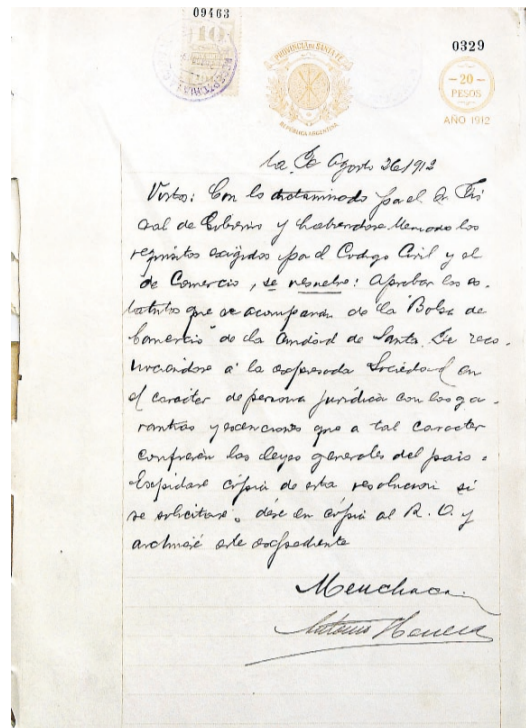 09463
10
0329
PROVINCIA DE SANTA FE
REPUBLICA ARGENTINA
-20-
PESOS
AÑO 1912
Sta. Fe Agosto 26/912
Visto: Con lo dictaminado por el Sr Fis
cal de Gobierno y habiendose llenado los
requisitos exigidos por el Codigo Civil y el
de Comercio, se resuelve: Aprobar los es.
tatutos que se acompañan de la "Bolsa de
Comercio" de la Ciudad de Santa Fe reco-
nociendose á la expresada Sociedad en
el caracter de persona jurídica con las ga-
rantias y exenciones que a tal caracter
confieren las leyes generales del pais.
Expidase cópia de esta resolucion si
se solicitase, dése en cópia al R. O. y
archívese este expediente
Menchaca
Antonio Herrera